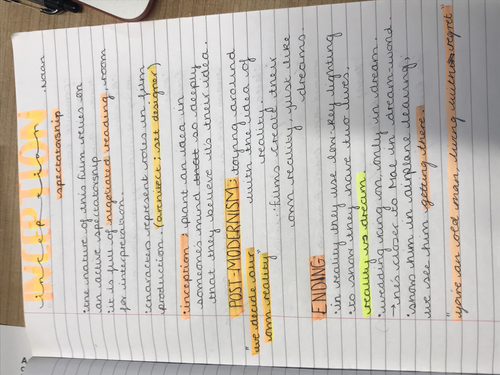 INCEPTION
inception
spectatorship
·the nature of this film relies on
an active spectatorship
·it is full of negotiated reading, room
for interpretation.
·characters represent roles in film
production (architect: set designer)
·inception: plant an idea in
someone's mind that so deeply
that they believe it's their idea.
POST-MODERNISM: toying around
with the idea of
reality.
"we decide our
own reality"
·films create their
own reality. just like
dreams.
ENDING
·in reality they use low-key lighting
·to show they have two lives.
reality vs dream.
·wedding ring on, only in dream.
→ he's closer to Mal in dream-world.
·shows him in airplane leaving,
we see him getting there.
"you're an old man, living with regret"
A
C